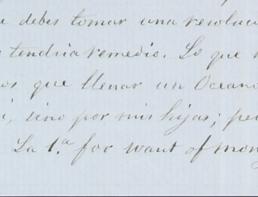 e debes tomar una resoluci
tendria remedio. Lo que
os que llenar un Oceano
i, sino por mis hijas; pe
La 1.a for want of mon